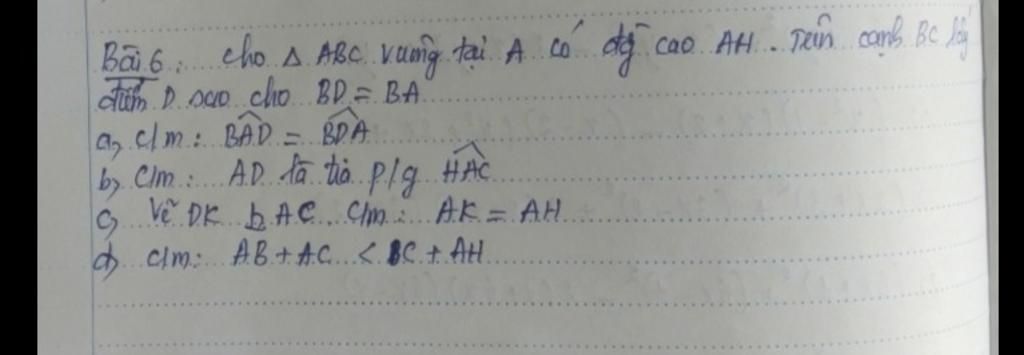 Bài 6: cho △ ABC vuông tại A có đg cao AH. Trên cạnh BC lấy
điểm D sao cho BD = BA
a, c/m: \widehat{BAD} = \widehat{BDA}
b, C/m: AD là tia p/g \widehat{HAC}
c, Vẽ DK ⊥ AC. C/m: AK = AH
d, c/m: AB + AC < BC + AH